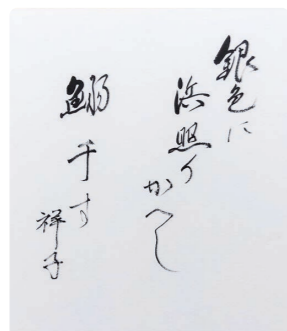 銀色に
浜照りかへし
鰯干す
祥子